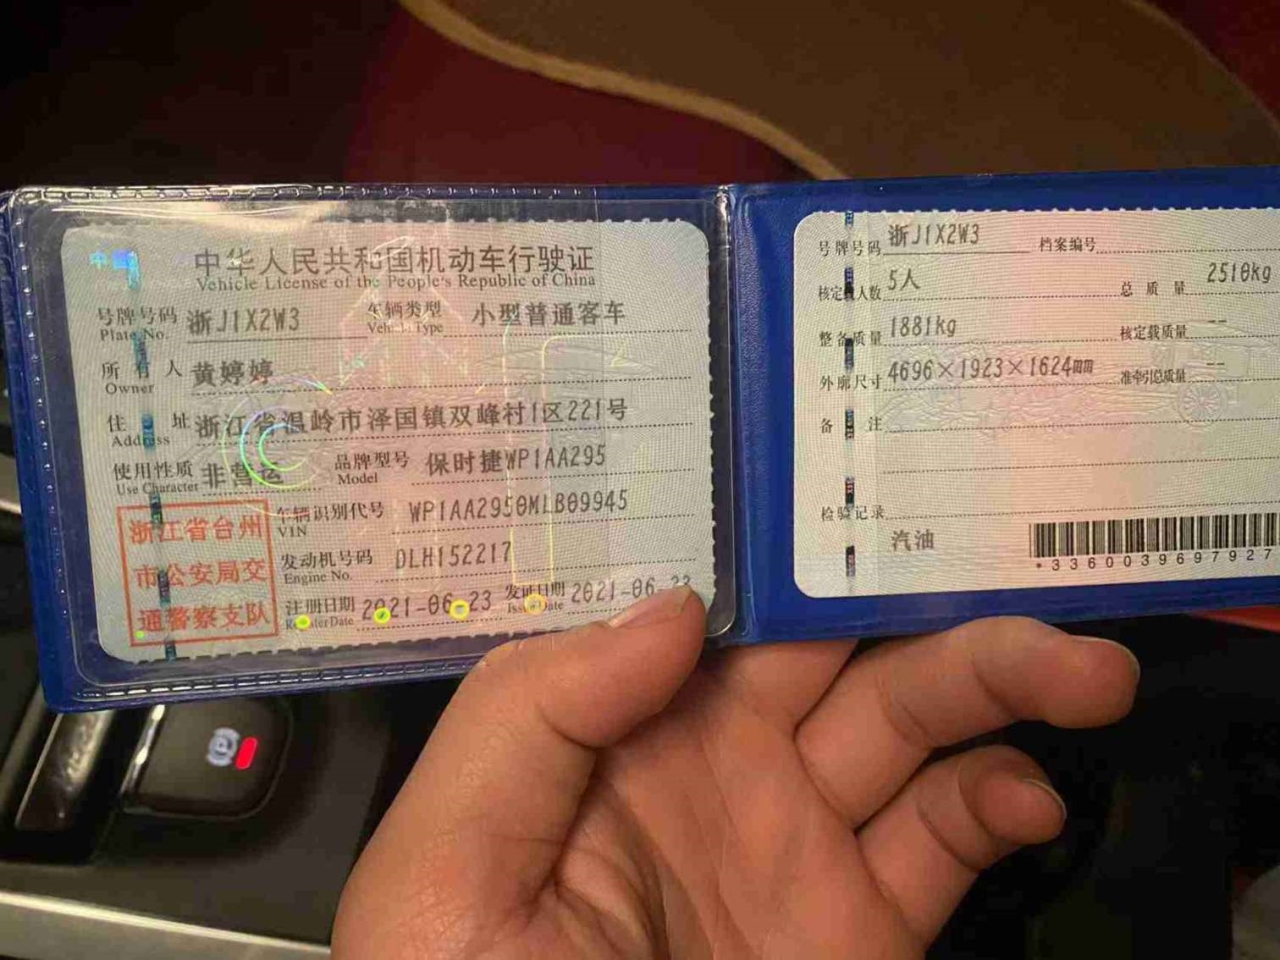 中国
中华人民共和国机动车行驶证
Vehicle License of the People's Republic of China
号牌号码 浙J1X2W3 车辆类型 小型普通客车
Plate No. Vehicle Type
所有人 黄婷婷
Owner
住址 浙江省温岭市泽国镇双峰村1区221号
Address
使用性质 非营运 品牌型号 保时捷WP1AA295
Use Character Model
浙江省台州
市公安局交
通警察支队
车辆识别代号 WP1AA2950MLB09945
VIN
发动机号码 DLH152217
Engine No.
注册日期 2021-06-23 发证日期 2021-06-23
Register Date Issue Date
号牌号码 浙J1X2W3 档案编号
核定载人数 5人 总质量 2510kg
整备质量 1881kg 核定载质量 --
外廓尺寸 4696×1923×1624mm 准牵引总质量 --
备注
检验记录
汽油
*3360039697927